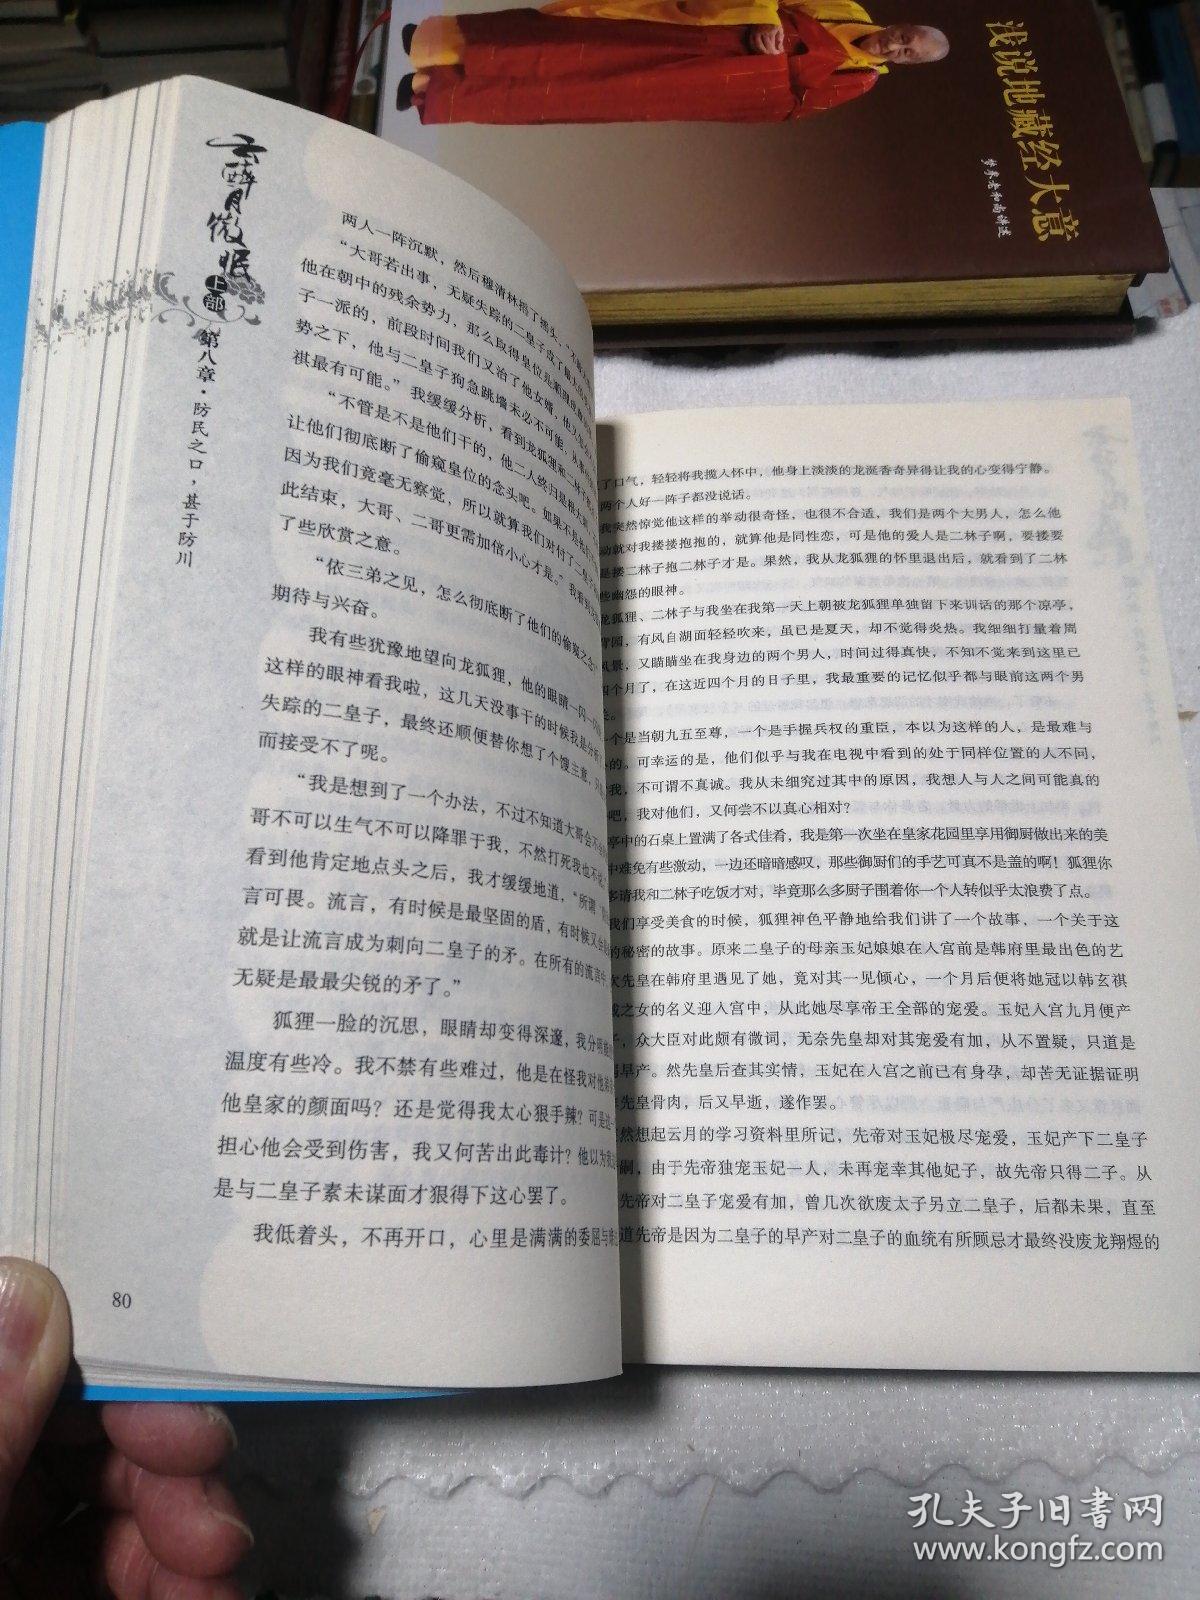 浅说地藏经大意
梦参老和尚讲述
云醉月微眠
上部
第八章·防民之口，甚于防川
两人一阵沉默，然后穆清林摇了摇头，“
“大哥若出事，无疑失踪的二皇子成了最大的
他在朝中的残余势力，那么取得皇位是顺理成章
子一派的，前段时间我们又治了他女婿，他
势之下，他与二皇子狗急跳墙未必不可能，从
祺最有可能。”我缓缓分析，看到龙狐狸和二林子
“不管是不是他们干的，他二人终归是
让他们彻底断了偷窥皇位的念头吧。如果不是他们
因为我们竟毫无察觉，所以就算我们对付了二皇子
此结束，大哥、二哥更需加倍小心才是。”我看到
了些欣赏之意。
“依三弟之见，怎么彻底断了他们的偷窥之念
期待与兴奋。
我有些犹豫地望向龙狐狸，他的眼睛一闪一闪
这样的眼神看我啦，这几天没事干的时候我是分析
失踪的二皇子，最终还顺便替你想了个馊主意，只
而接受不了呢。
“我是想到了一个办法，不过不知道大哥会不
哥不可以生气不可以降罪于我，不然打死我也不
看到他肯定地点头之后，我才缓缓地道，“所谓
言可畏。流言，有时候是最坚固的盾，有时候又会
就是让流言成为刺向二皇子的矛。在所有的流言中，
无疑是最最尖锐的矛了。”
狐狸一脸的沉思，眼睛却变得深邃，我分明能
温度有些冷。我不禁有些难过，他是在怪我对他弟弟
他皇家的颜面吗？还是觉得我太心狠手辣？可是这一
担心他会受到伤害，我又何苦出此毒计？他以为我
是与二皇子素未谋面才狠得下这心罢了。
我低着头，不再开口，心里是满满的委屈与难
80
了口气，轻轻将我揽入怀中，他身上淡淡的龙涎香奇异得让我的心变得宁静。
两个人好一阵子都没说话。
我突然惊觉他这样的举动很奇怪，也很不合适，我们是两个大男人，怎么他
动就对我搂搂抱抱的，就算他是同性恋，可是他的爱人是二林子啊，要搂要
是搂二林子抱二林子才是。果然，我从龙狐狸的怀里退出后，就看到了二林
些幽怨的眼神。
龙狐狸、二林子与我坐在我第一天上朝被龙狐狸单独留下来训话的那个凉亭，
背园，有风自湖面轻轻吹来，虽已是夏天，却不觉得炎热。我细细打量着周
风景，又瞄瞄坐在我身边的两个男人，时间过得真快，不知不觉来到这里已
四个月了，在这近四个月的日子里，我最重要的记忆似乎都与眼前这两个男
一个是当朝九五至尊，一个是手握兵权的重臣，本以为这样的人，是最难与
的。可幸运的是，他们似乎与我在电视中看到的处于同样位置的人不同，
我，不可谓不真诚。我从未细究过其中的原因，我想人与人之间可能真的
吧，我对他们，又何尝不以真心相对？
亭中的石桌上置满了各式佳肴，我是第一次坐在皇家花园里享用御厨做出来的美
中难免有些激动，一边还暗暗感叹，那些御厨们的手艺可真不是盖的啊！狐狸你
多请我和二林子吃饭才对，毕竟那么多厨子围着你一个人转似乎太浪费了点。
我们享受美食的时候，狐狸神色平静地给我们讲了一个故事，一个关于这
的秘密的故事。原来二皇子的母亲玉妃娘娘在入宫前是韩府里最出色的艺
次先皇在韩府里遇见了她，竟对其一见倾心，一个月后便将她冠以韩玄祺
戚之女的名义迎入宫中，从此她尽享帝王全部的宠爱。玉妃入宫九月便产
子，众大臣对此颇有微词，无奈先皇却对其宠爱有加，从不置疑，只道是
早产。然先皇后查其实情，玉妃在入宫之前已有身孕，却苦无证据证明
先皇骨肉，后又早逝，遂作罢。
然想起云月的学习资料里所记，先帝对玉妃极尽宠爱，玉妃产下二皇子
嗣，由于先帝独宠玉妃一人，未再宠幸其他妃子，故先帝只得二子。从
先帝对二皇子宠爱有加，曾几次欲废太子另立二皇子，后都未果，直至
道先帝是因为二皇子的早产对二皇子的血统有所顾忌才最终没废龙翔煜的
孔夫子旧书网
www.kongfz.com